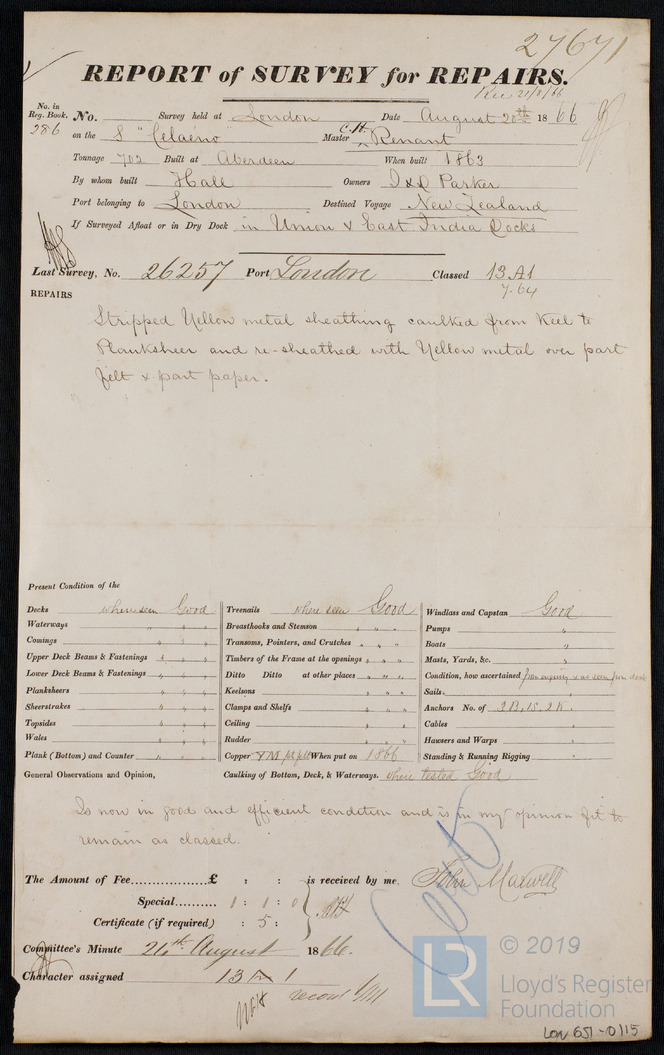 27671
REPORT of SURVEY for REPAIRS.
Rec 21/8/66
No. in Reg. Book. 286
No. Survey held at London Date August 20th 1866
on the S "Celaeno" Master C.H. Renant
Tonnage 702 Built at Aberdeen When built 1863
By whom built Hall Owners I & D Parker
Port belonging to London Destined Voyage New Zealand
If Surveyed Afloat or in Dry Dock in Union & East India Docks
Last Survey, No. 26257 Port London Classed 13 A1
7.64
REPAIRS
Stripped Yellow metal sheathing caulked from Keel to
Planksheer and re-sheathed with Yellow metal over part
felt & part paper.
Present Condition of the
Decks where seen Good
Waterways " " "
Comings " " "
Upper Deck Beams & Fastenings " " "
Lower Deck Beams & Fastenings " " "
Planksheers " " "
Sheerstrakes " " "
Topsides " " "
Wales " " "
Plank (Bottom) and Counter " " "
Treenails where seen Good
Breasthooks and Stemson " " "
Transoms, Pointers, and Crutches " " "
Timbers of the Frame at the openings " " "
Ditto Ditto at other places " " "
Keelsons " " "
Clamps and Shelfs " " "
Ceiling " " "
Rudder " " "
Copper YM pt felt When put on 1866
Windlass and Capstan Good
Pumps "
Boats "
Masts, Yards, &c. "
Condition, how ascertained from enquiry & as seen from deck
Sails "
Anchors No. of 2B, 1S, 2K.
Cables "
Hawsers and Warps "
Standing & Running Rigging "
General Observations and Opinion, Caulking of Bottom, Deck, & Waterways. where tested Good
Is now in good and efficient condition and is in my opinion fit to
remain as classed.
The Amount of Fee £ : : is received by me. John Maxwell
Special 1 : 1 : 0
Certificate (if required) : 5 :
Cert
Committee's Minute 21th August 1866.
Character assigned 13 A 1
© 2019
LR
Lloyd's Register
Foundation
LON 651-0115